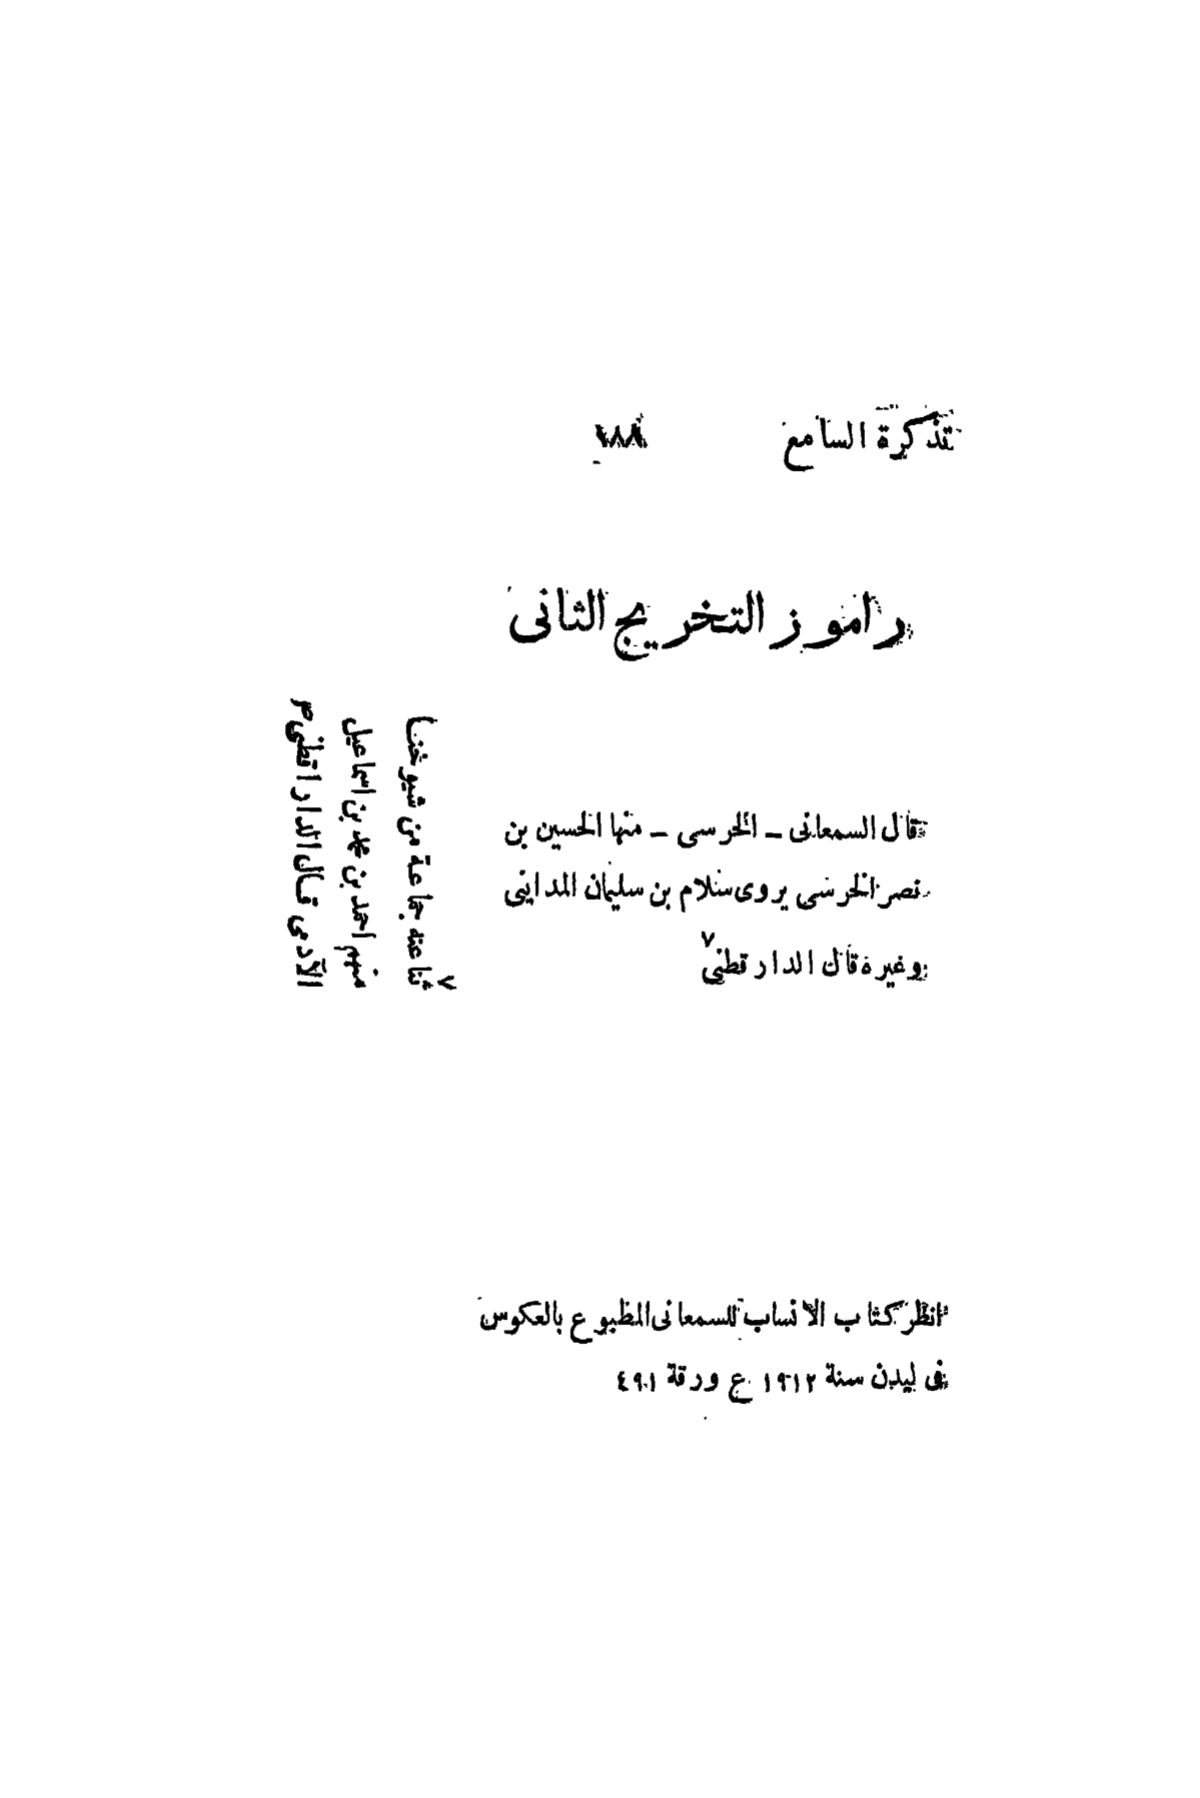 تذكرة السامع ١٨٨
راموز التخريج الثانى
قال السمعانى ــ الخرسى ــ منها الحسين بن
نصر الخرسى يروى سلام بن سليمان المداينى
وغيره قال الدار قطنى ٧
٧ ثنا عنه جماعة من شيوخنا
منهم احمد بن محمد بن اسماعيل
الآدمى قال الدار اقطنى
انظر كتاب الانساب للسمعانى المطبوع بالعكوس
فى ليدن سنة ١٩١٢ ع ورقة ٤٩١